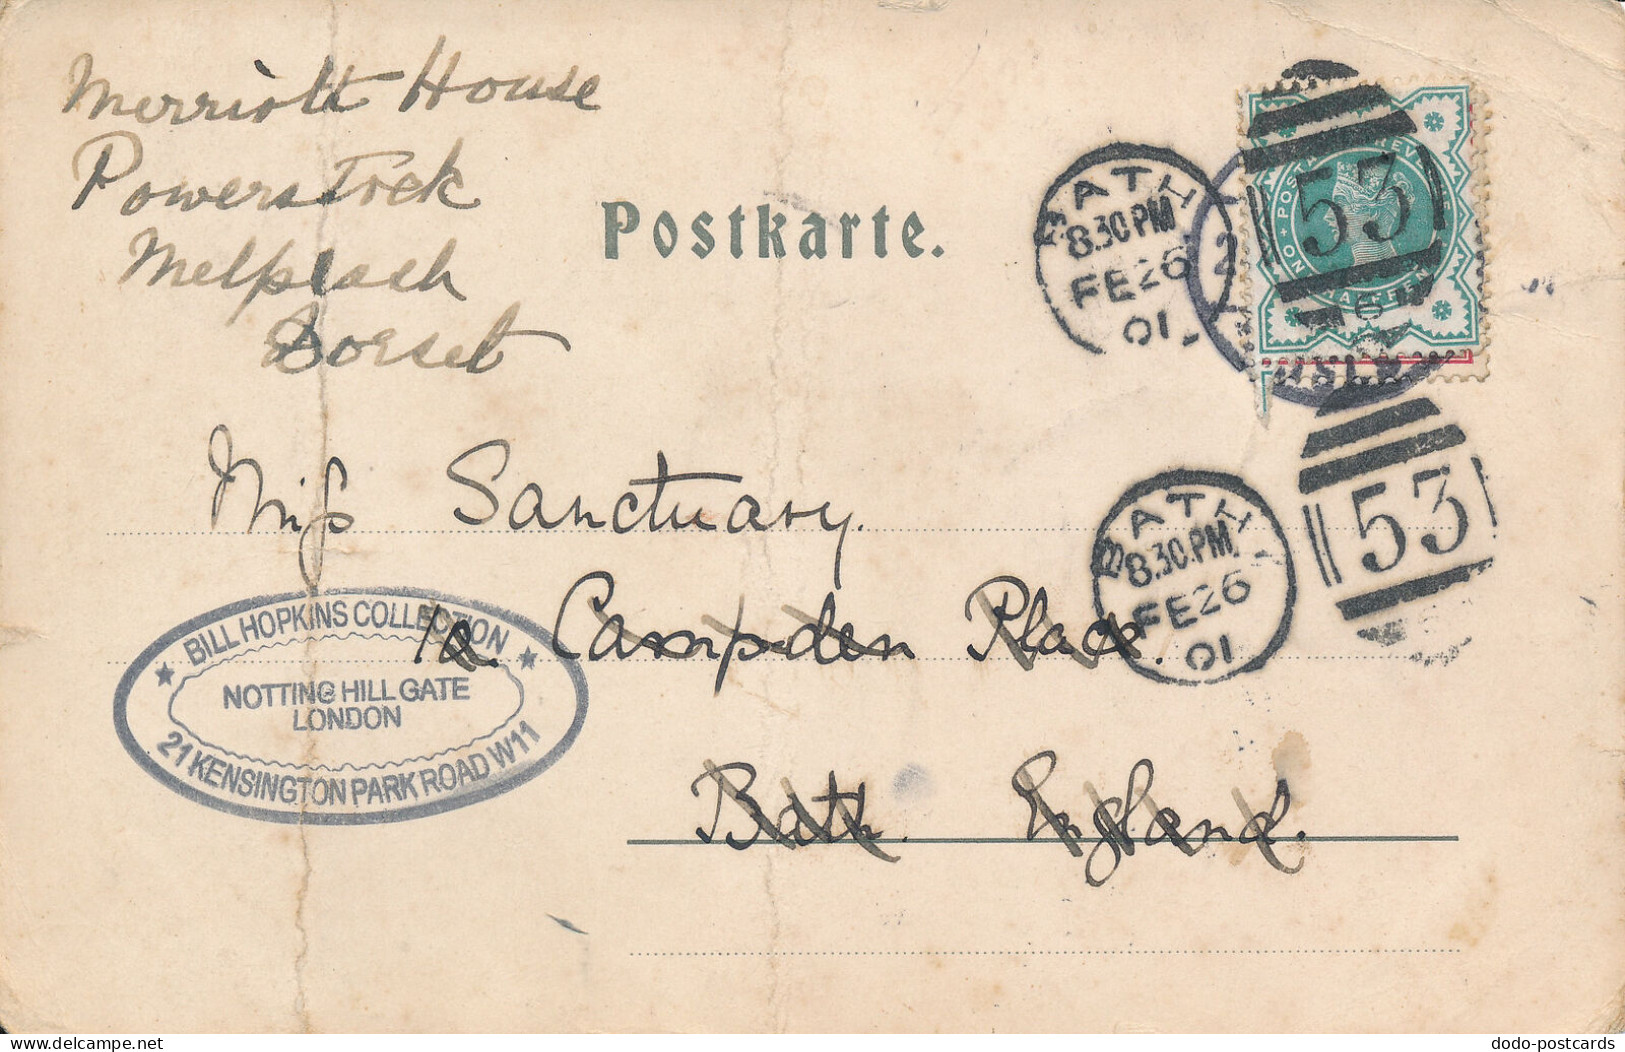 Merriott House
Powerstock
Melplash
Dorset
Postkarte.
BATH
8.30 PM
FE 26
01
53
Miss Sanctuary.
1a Campden Place.
Bath. England.
BATH
8.30.PM.
FE 26
01
53
BILL HOPKINS COLLECTION
NOTTING HILL GATE
LONDON
21 KENSINGTON PARK ROAD W11
www.delcampe.net
dodo-postcards